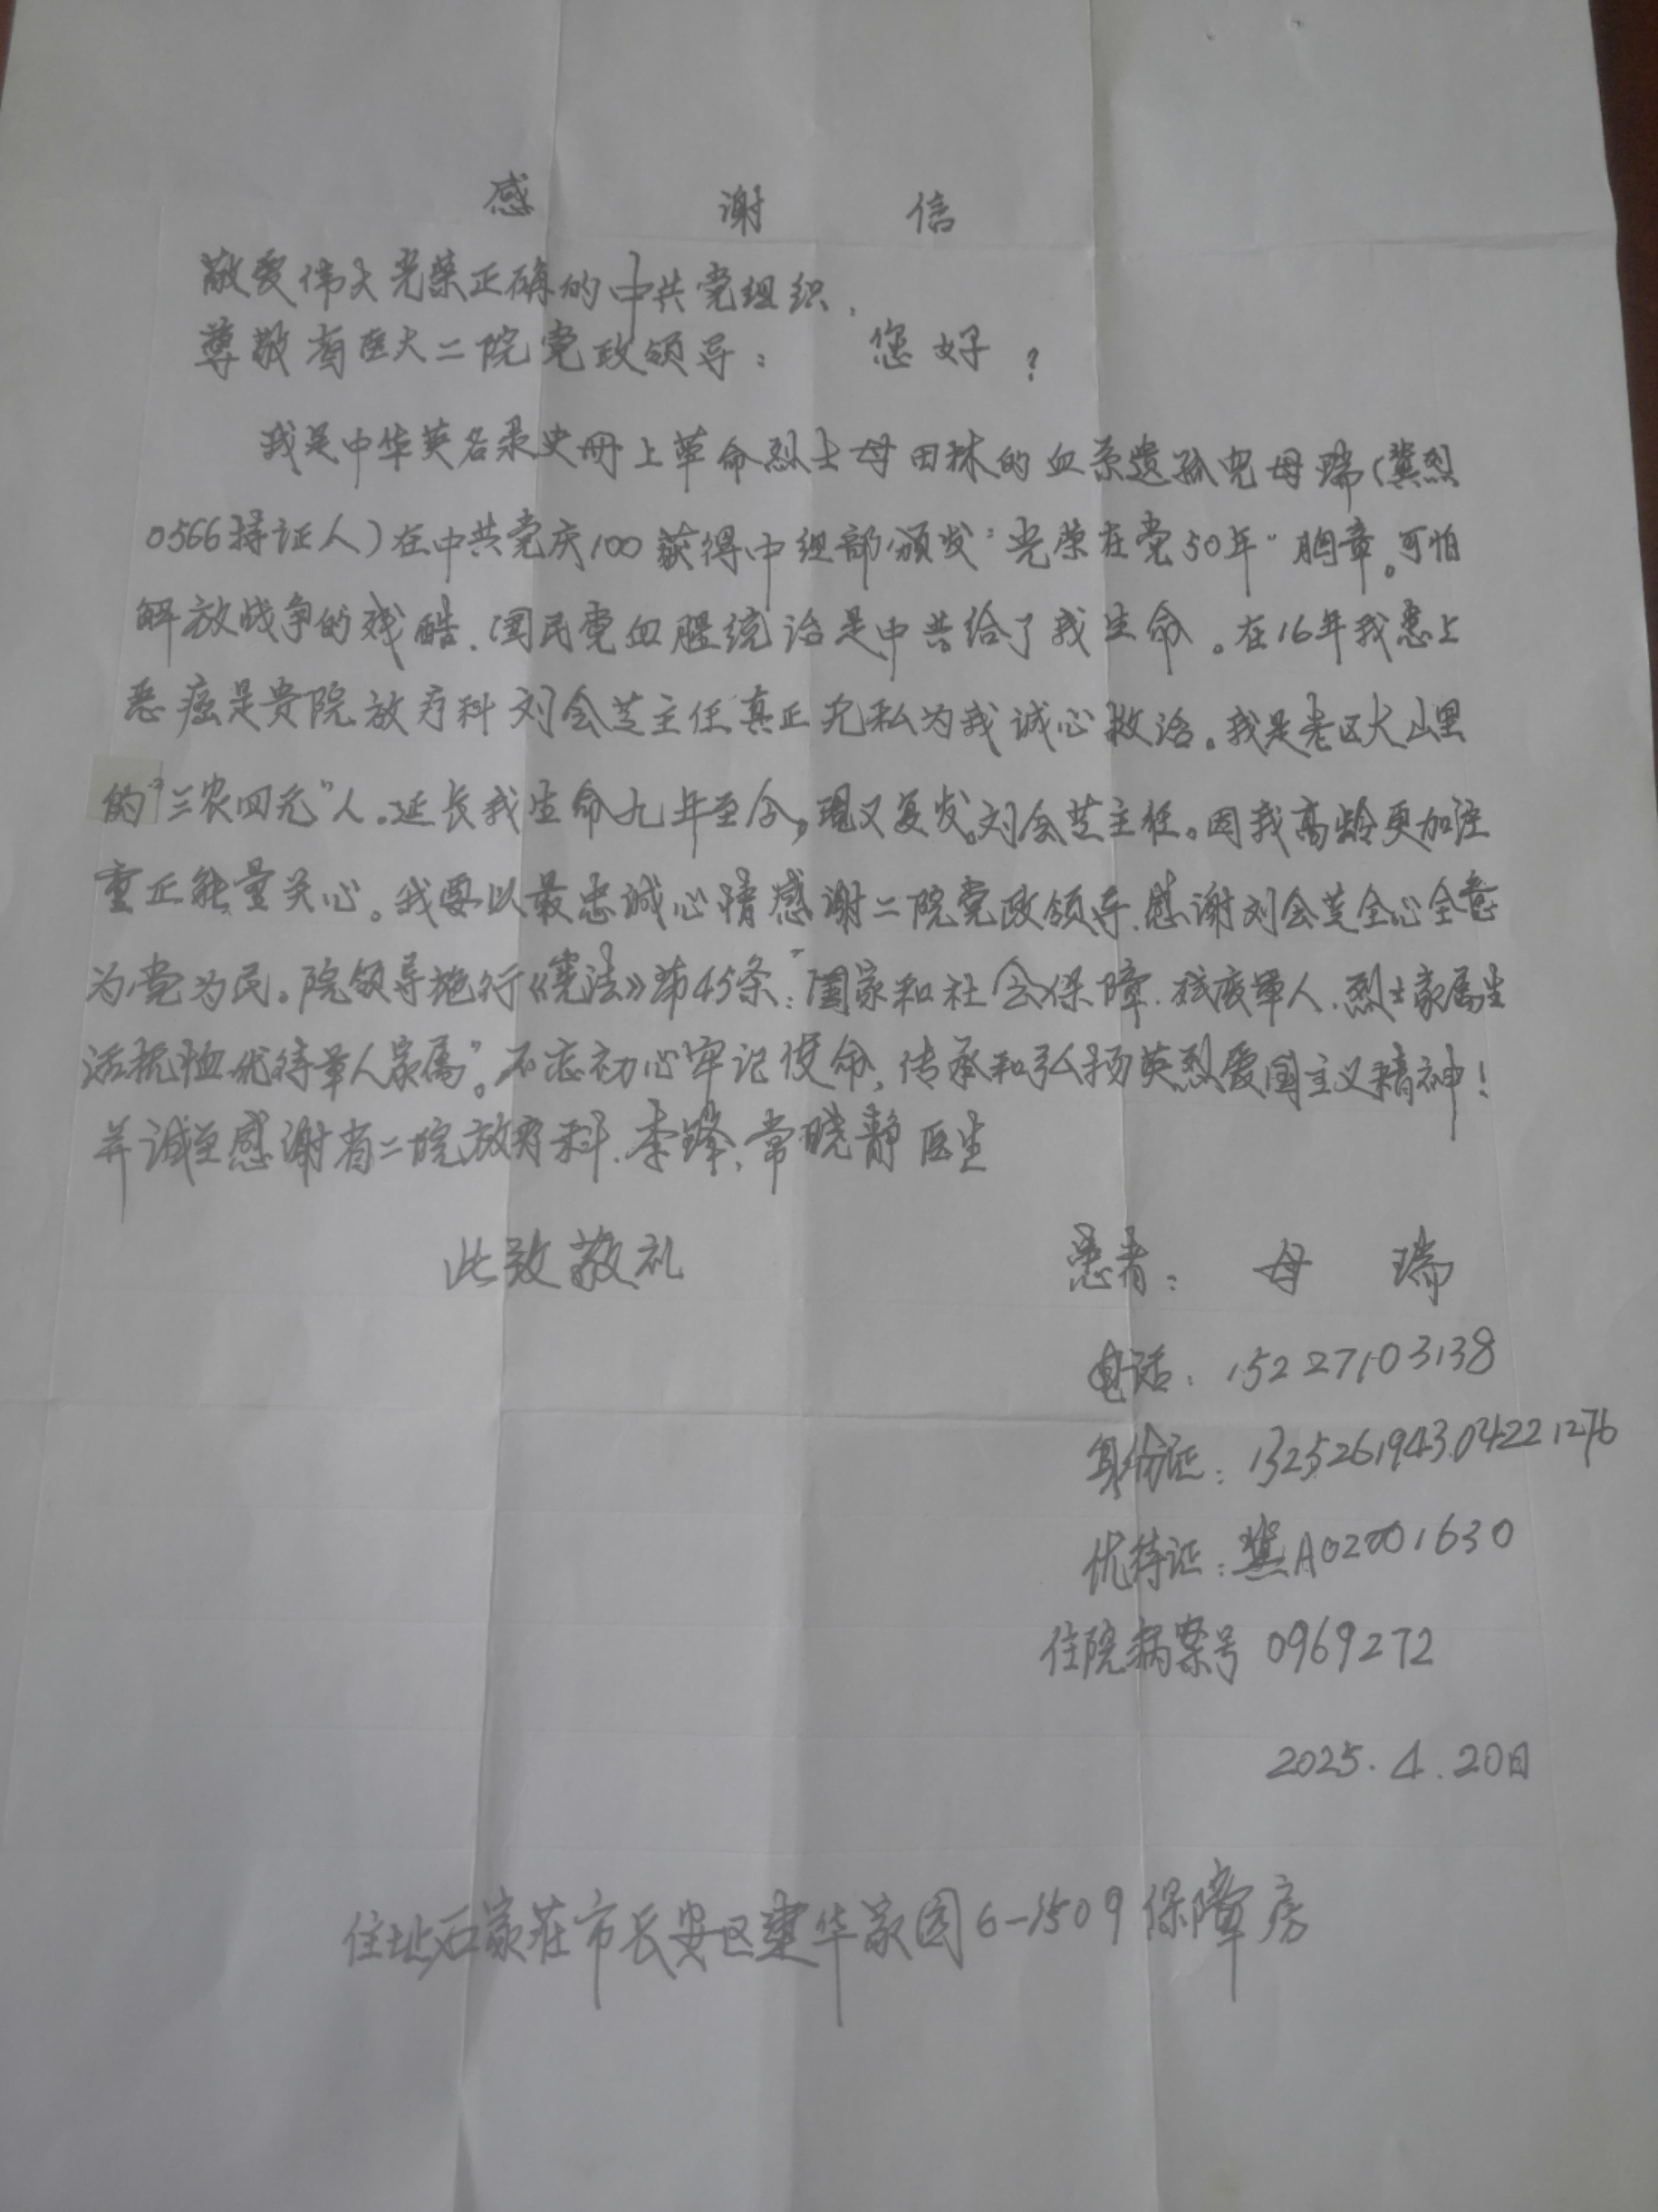 感 谢 信
敬爱伟大光荣正确的中共党组织、
尊敬省医大二院党政领导： 您好？
我是中华英名录史册上革命烈士母田秣的血亲遗孤儿母瑞（冀烈
0566持证人）在中共党庆100获得中组部颁发"光荣在党50年"胸章。可怕
解放战争的残酷、国民党血腥统治是中共给了我生命。在16年我患上
恶癌是贵院放疗科刘会芝主任真正无私为我诚心救治。我是老区大山里
的"三农四无"人。延长我生命九年至今，现又复发。刘会芝主任。因我高龄更加注
重正能量关心。我要以最忠诚心情感谢二院党政领导、感谢刘会芝全心全意
为党为民。院领导施行《宪法》第45条："国家和社会保障、残废军人、烈士家属生
活抚恤优待军人家属"。不忘初心牢记使命，传承和弘扬英烈爱国主义精神！
并诚至感谢省二院放疗科、李锋、常晓静医生
此致敬礼 患者： 母 瑞
电话：15227103138
身份证：132526194304221276
优待证：冀A02001630
住院病案号 0969272
2025.4.20日
住址石家莊市长安区建华家园6-1509保障房